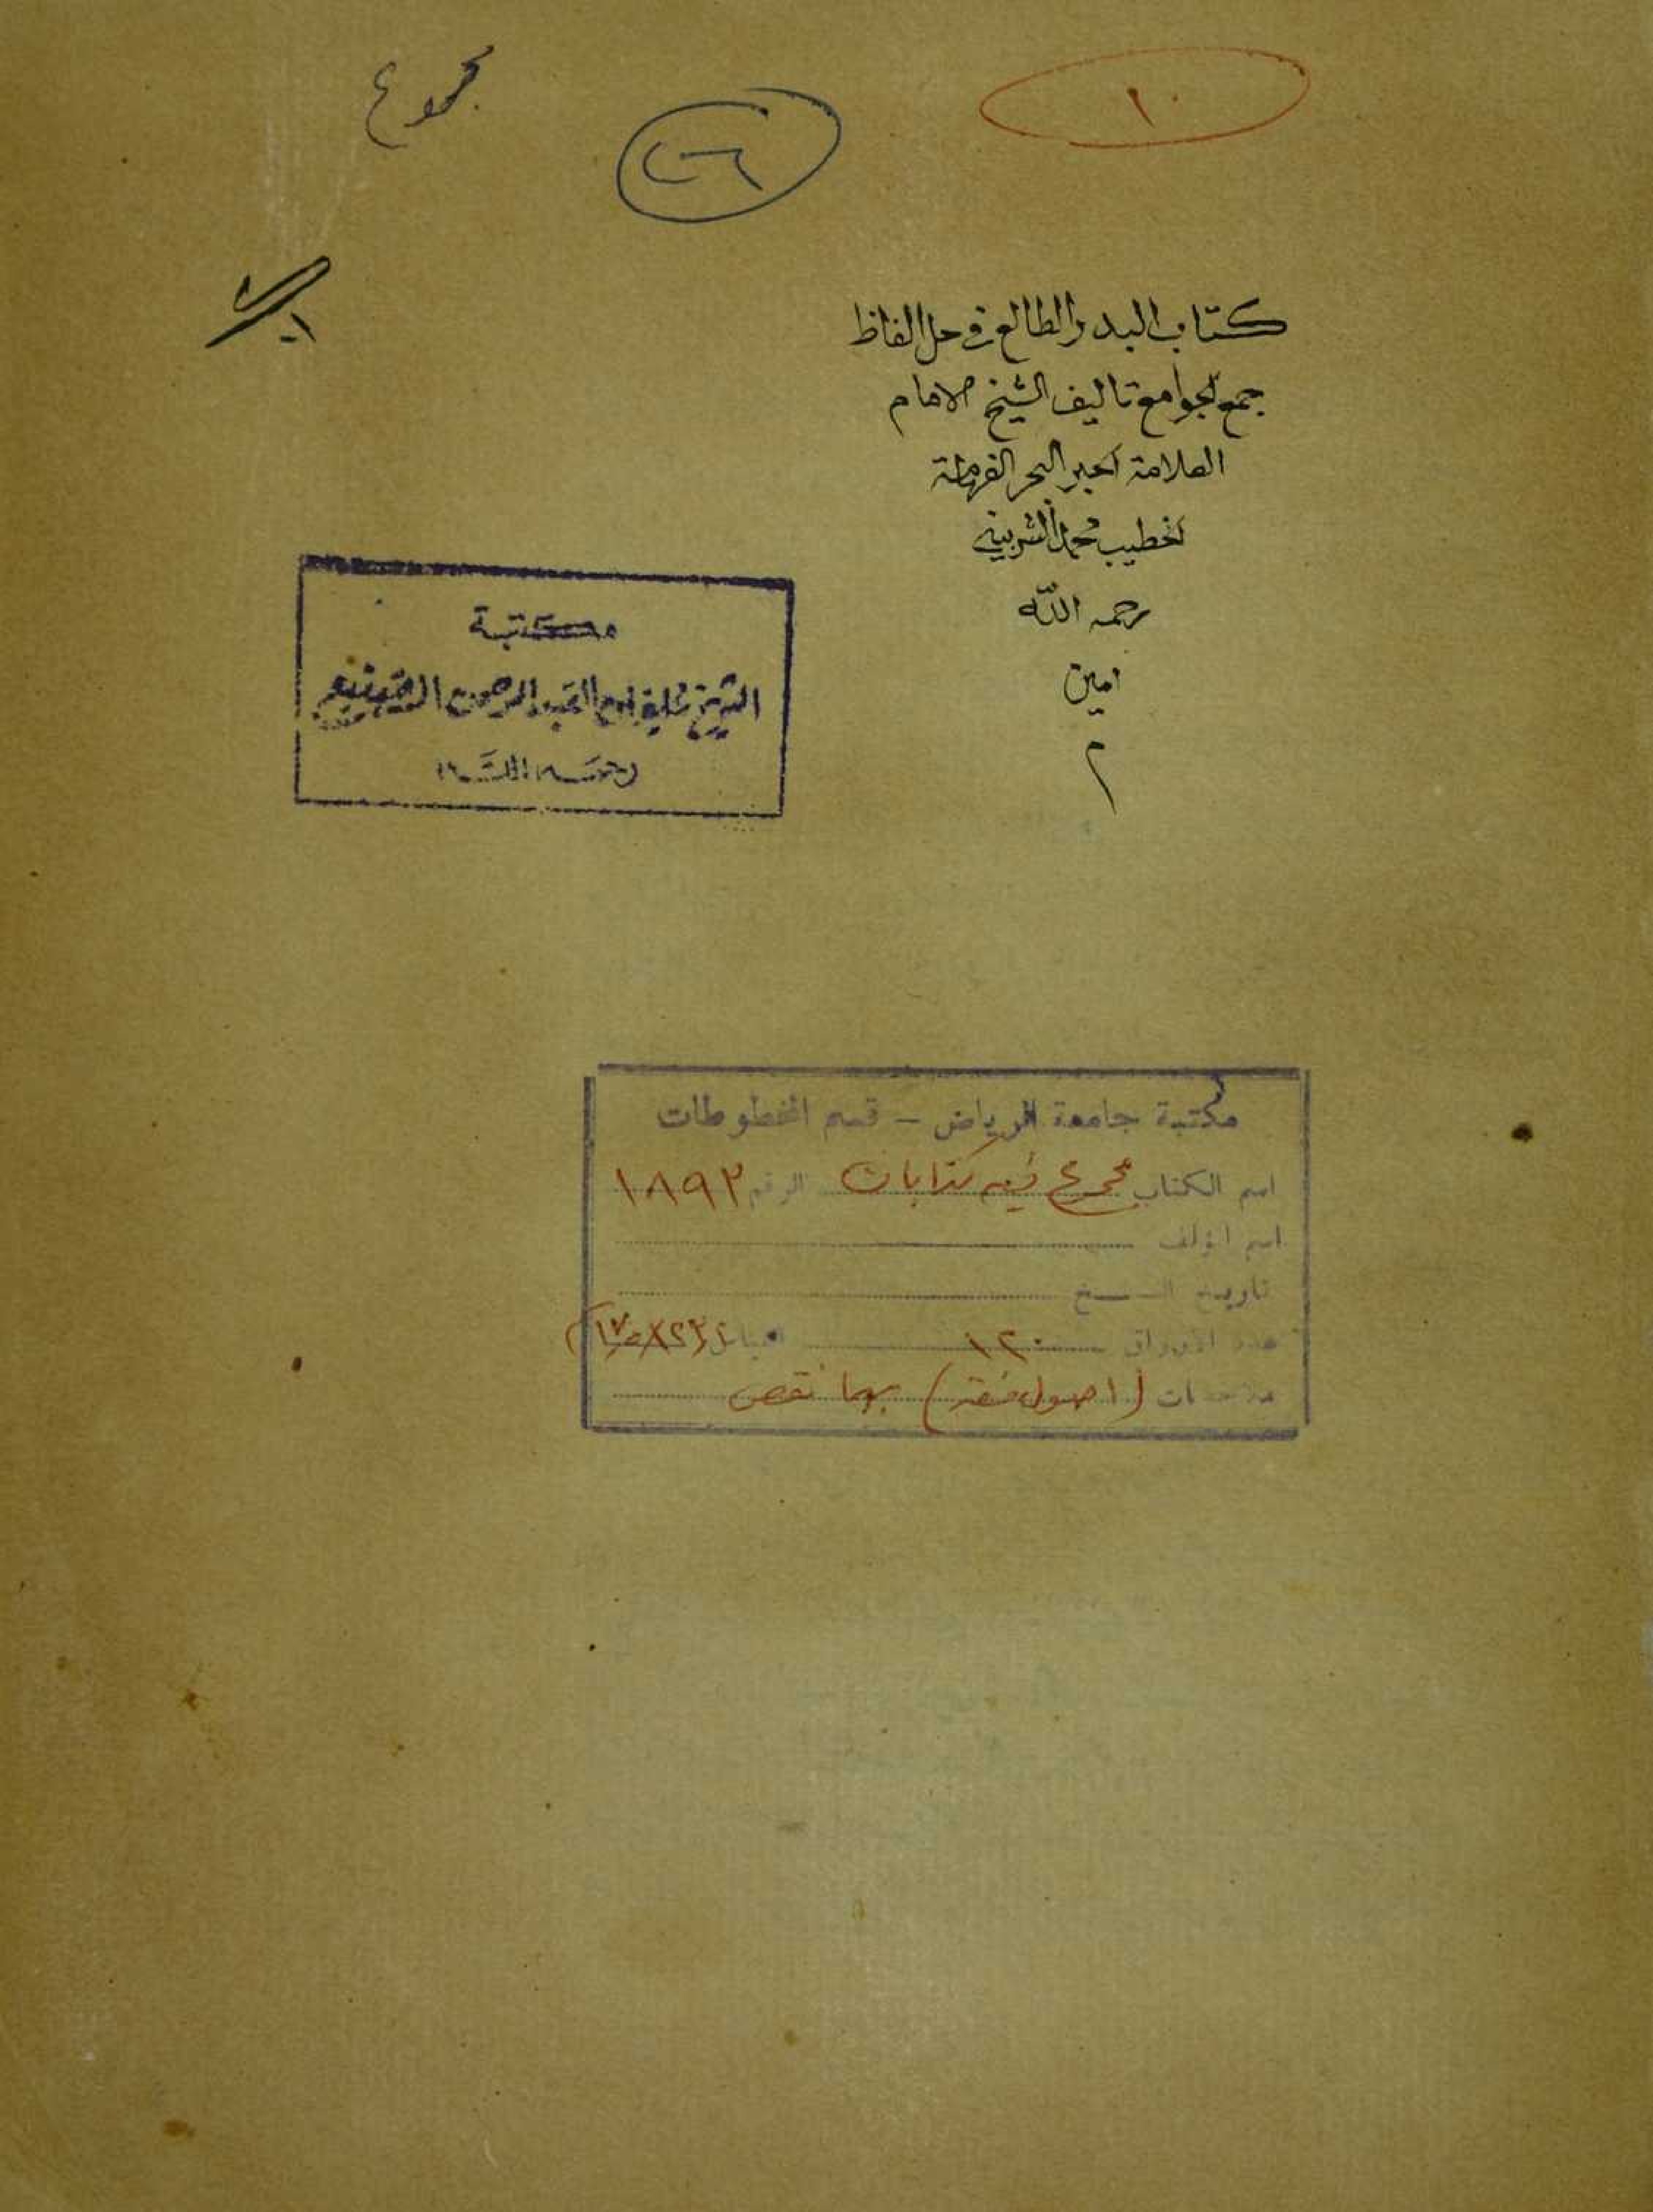 ١٠
٢٦
مجموع
كتاب البدر الطالع في حل الفاظ
جمع الجوامع تاليف الشيخ الامام
العلامة الحبر البحر الفهامة
الخطيب محمد الشربيني
رحمه الله
امين
م
مكتبة
الشيخ العبد الرحمن الصنيع
رحمه الله
مكتبة جامعة الرياض - قسم المخطوطات
اسم الكتاب مجموع فيه كتابان الرقم ١٨٩٢
اسم المؤلف
تاريخ النسخ
عدد الأوراق ١٢٠ القياس
ملاحظات (اصول فقه) بهما نقص